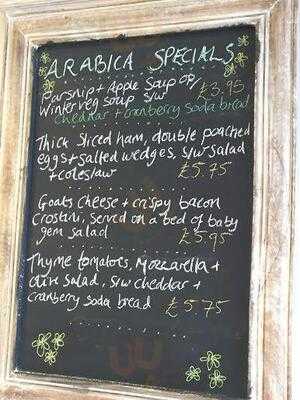 ARABICA SPECIALS
Parsnip + Apple Soup or/
Winter veg soup s/w £3.95
Cheddar + cranberry soda bread
Thick sliced ham, double poached
eggs + salted wedges, s/w salad
+ coleslaw £5.75
Goats cheese + crispy bacon
Crostini, served on a bed of baby
gem salad £5.95
Thyme tomatoes, Mozzarella +
Olive salad, s/w cheddar +
cranberry soda bread £5.75